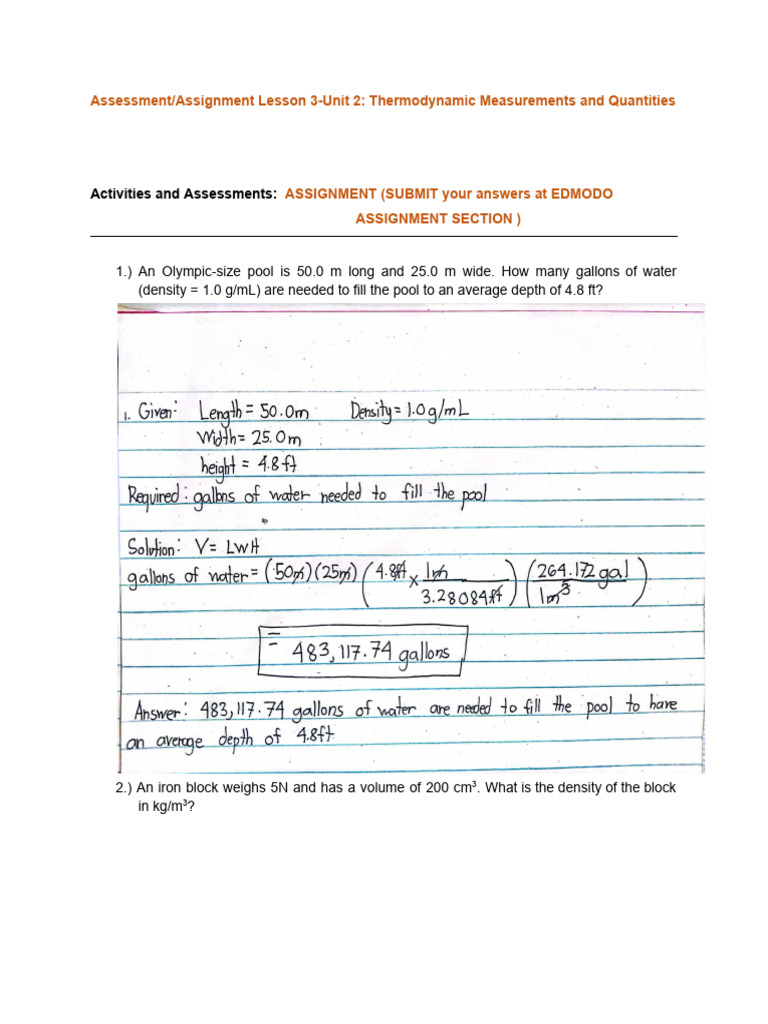 Assessment/Assignment Lesson 3-Unit 2: Thermodynamic Measurements and Quantities
Activities and Assessments: ASSIGNMENT (SUBMIT your answers at EDMODO
ASSIGNMENT SECTION )
1.) An Olympic-size pool is 50.0 m long and 25.0 m wide. How many gallons of water
(density = 1.0 g/mL) are needed to fill the pool to an average depth of 4.8 ft?
1. Given: Length = 50.0m Density = 1.0 g/mL
Width = 25.0m
height = 4.8 ft
Required: gallons of water needed to fill the pool
Solution: V = LWH
gallons of water = (50m)(25m) (4.8ft x 1m / 3.28084ft) (264.172 gal / 1m³)
= 483,117.74 gallons
Answer: 483,117.74 gallons of water are needed to fill the pool to have
an average depth of 4.8ft
2.) An iron block weighs 5N and has a volume of 200 cm³. What is the density of the block
in kg/m³?